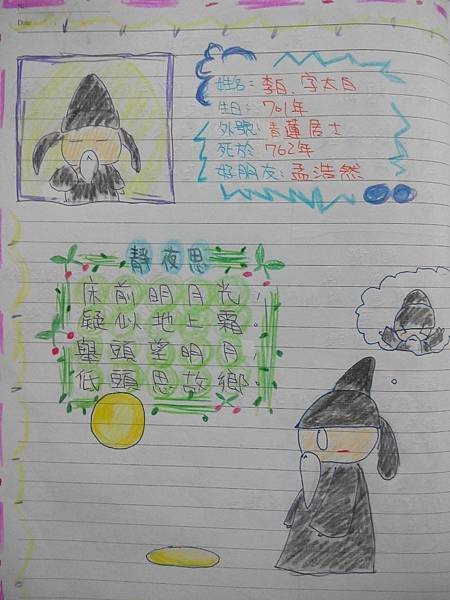 Date
姓名:李白.字太白
生日:701年
外號:青蓮居士
死於:762年
好朋友:孟浩然
靜夜思
床前明月光,
疑似地上霜。
舉頭望明月,
低頭思故鄉。